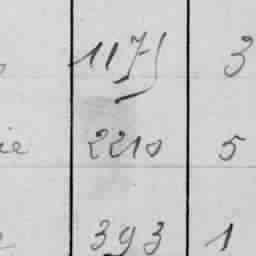 1175 3
ie 2210 5
393 1